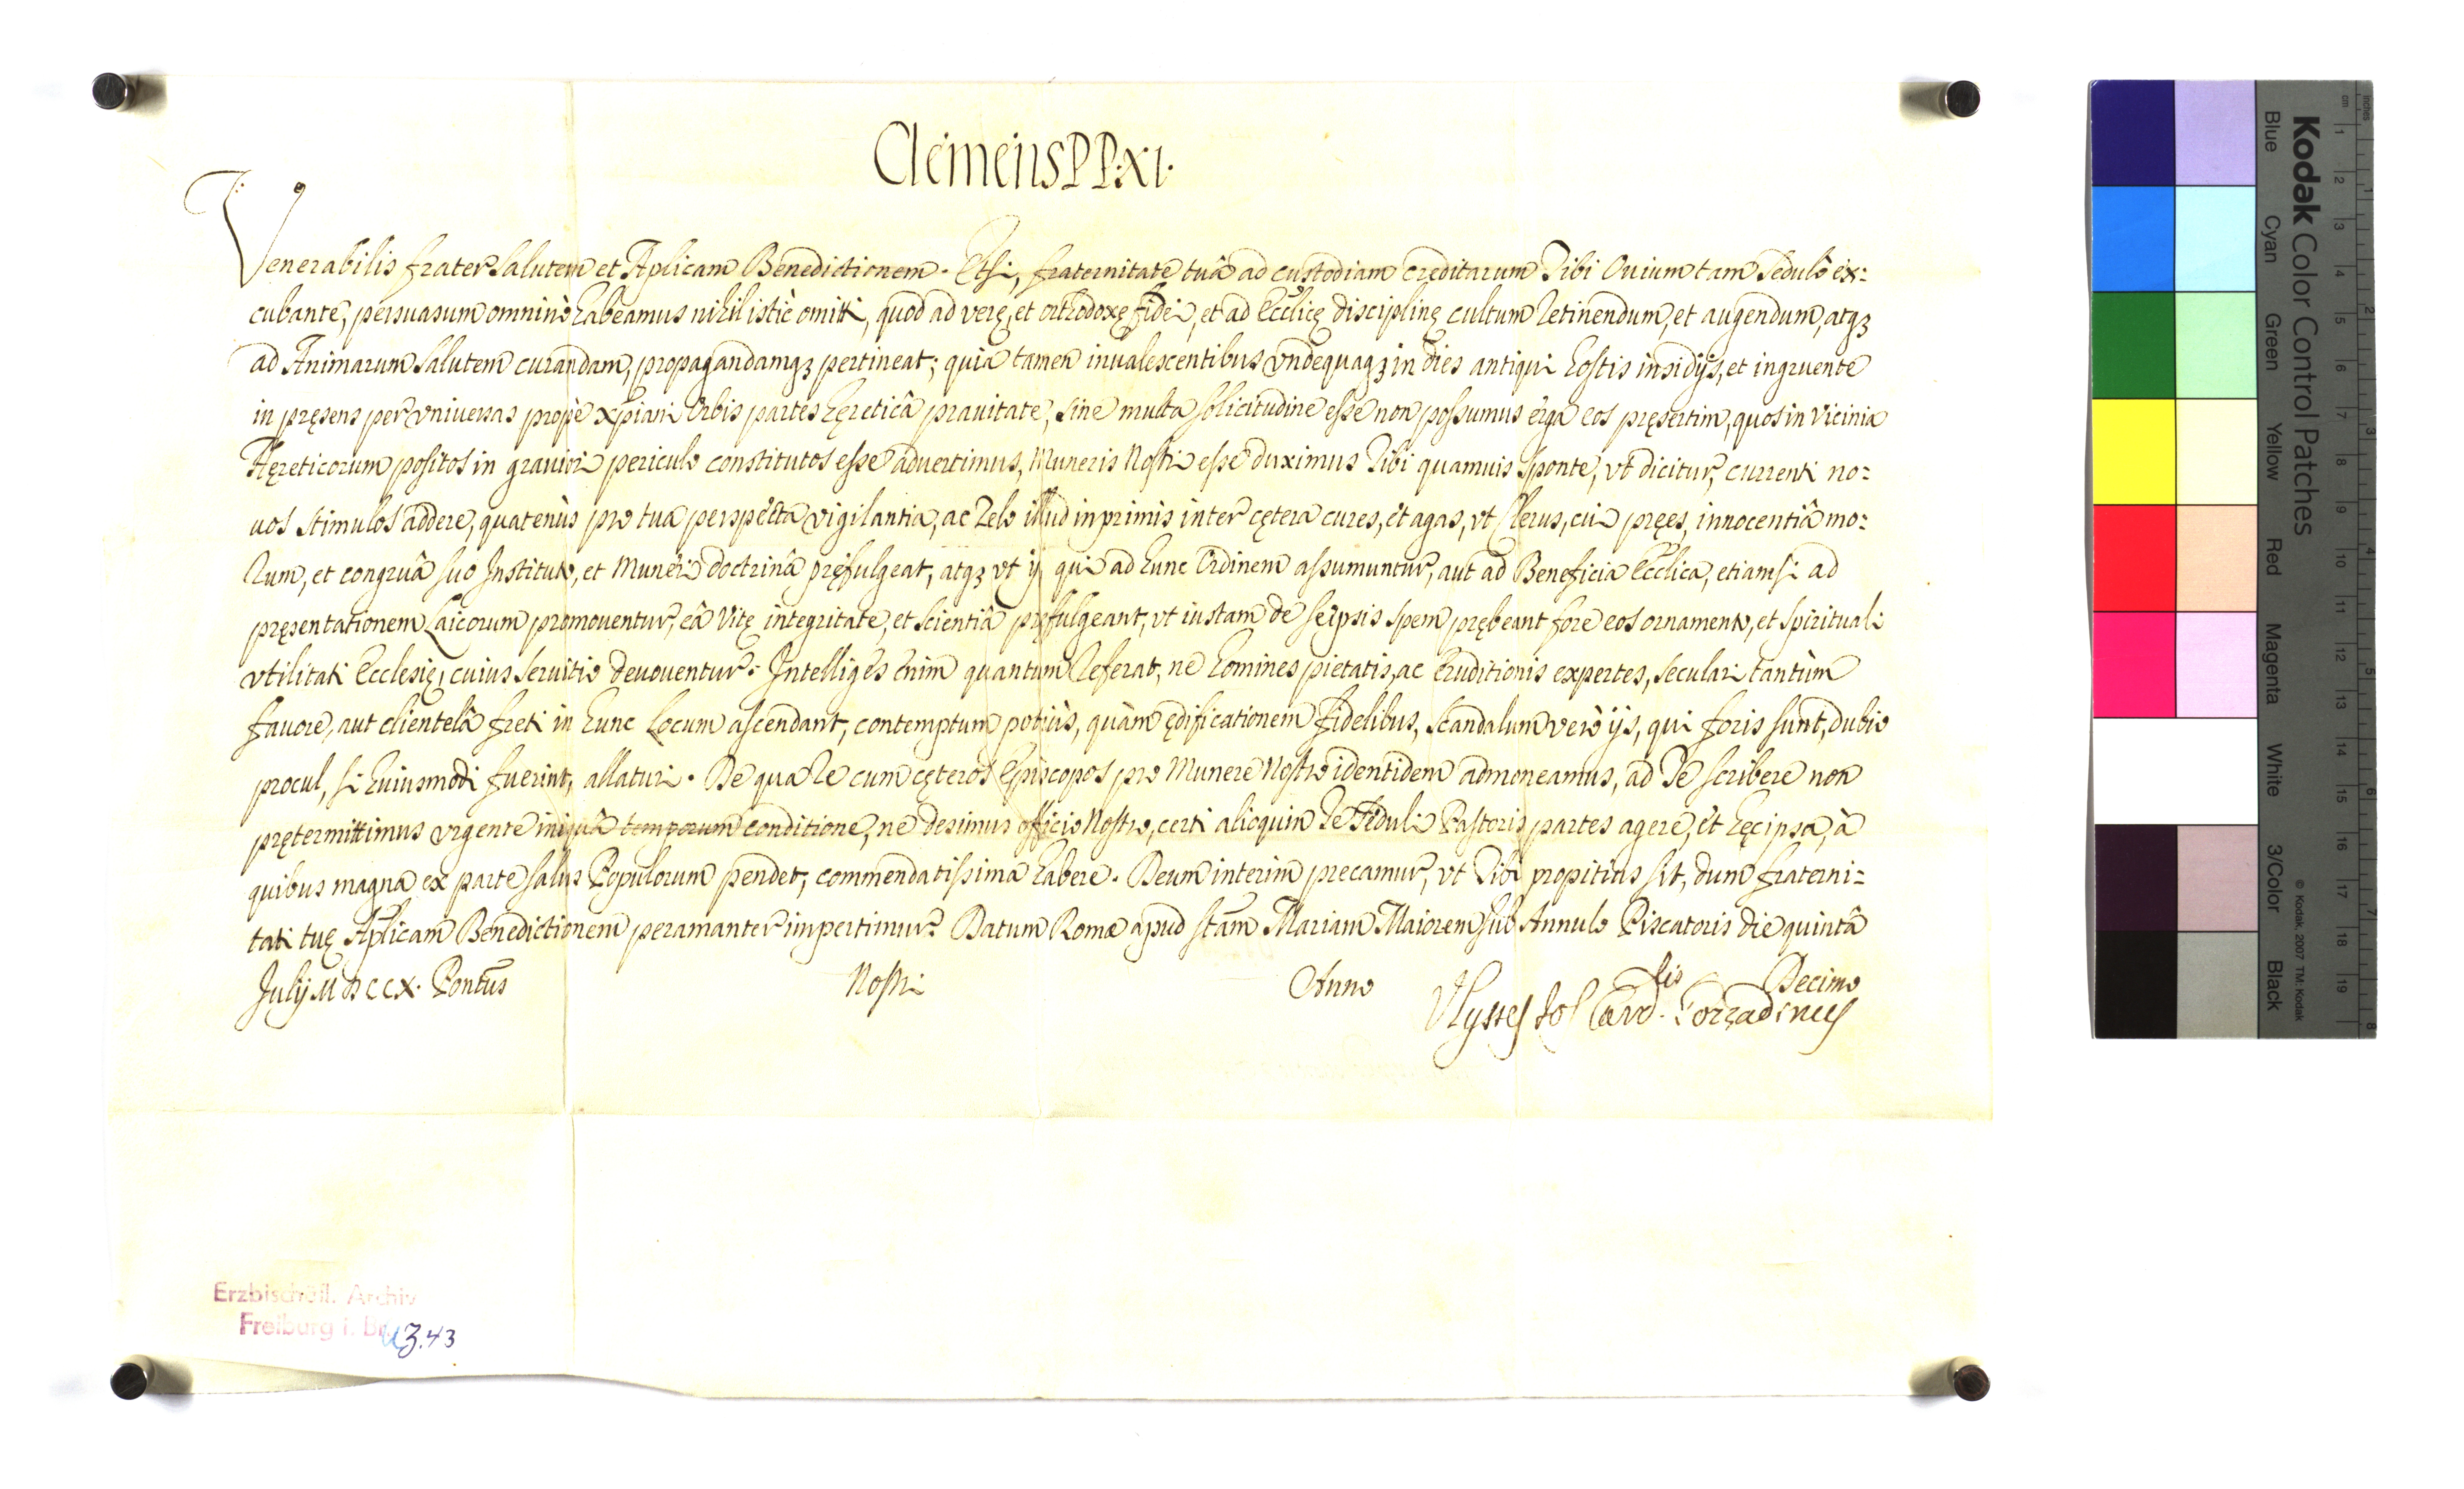 Clemens PP. XI.
Venerabilis frater salutem et Aplicam Benedictionem. Etsi, fraternitate tuâ ad custodiam creditarum Tibi Ouium tam sedulò ex:
cubante, persuasum omninò habeamus nihil istìc omitti, quod ad verę, et orthodoxę fidei, et ad Ecclicę disciplinę cultum retinendum, et augendum, atqз
ad Animarum salutem curandam, propagandamqз pertineat; quia tamen inualescentibus vndequaqз in dies antiqui hostis insidijs, et ingruente
in pręsens per vniuersas propè Xpiani Orbis partes hęreticâ prauitate, sine multa solicitudine esse non possumus erga eos pręsertim, quos in vicinia
Hęreticorum positos in grauiori periculo constitutos esse aduertimus, Muneris Nostri esse duximus Tibi quamuis sponte, vt dicitur, currenti no:
uos stimulos addere, quatenùs pro tua perspecta vigilantia, ac zelo illud inprimis inter cętera cures, et agas, vt Clerus, cui pręes, innocentiâ mo:
rum, et congruâ suo Instituto, et Muneri doctrinâ pręfulgeat, atqз vt ij qui ad hunc Ordinem assumuntur, aut ad Beneficia Ecclica, etiamsi ad
pręsentationem Laicorum promouentur, eâ vitę integritate, et scientiâ pręfulgeant, vt iustam de seipsis spem prębeant fore eos ornamento, et spirituali
vtilitati Ecclesię, cuius seruitio deuouentur. Intelliges enim quantum referat, ne homines pietatis, ac eruditionis expertes, seculari tantùm
fauore, aut clientelâ freti in hunc Locum ascendant, contemptum potiùs, quàm ędificationem fidelibus, scandalum verò ijs, qui foris sunt, dubio
procul, si huiusmodi fuerint, allaturi. De qua re cum cęteros Episcopos pro Munere Nostro identidem admoneamus, ad Te scribere non
prętermittimus vrgente iniquâ temporum conditione, ne desimus officio Nostro, certi alioquin Te seduli Pastoris partes agere, et hęc ipsa, à
quibus magna ex parte salus Populorum pendet, commendatissima habere. Deum interim precamur, vt Tibi propitius sit, dum fraterni:
tati tuę Aplicam Benedictionem peramanter impertimur. Datum Romæ apud Stam Mariam Maiorem sub Annulo Piscatoris die quintâ
Julij MDCCX. Pontus Nostri Anno Decimo
Vlysses Jos Card.lis Gozzadinus
Erzbischöfl. Archiv
Freiburg i. Br.
U3.43
Kodak Color Control Patches
Blue Cyan Green Yellow Red Magenta White 3/Color Black
© Kodak, 2007 TM: Kodak
inches 1 2 3 4 5 6 7 8
cm 1 2 3 4 5 6 7 8 9 10 11 12 13 14 15 16 17 18 19